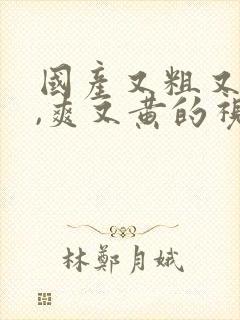 國產又粗又
,爽又黄的視
林鄭月娥